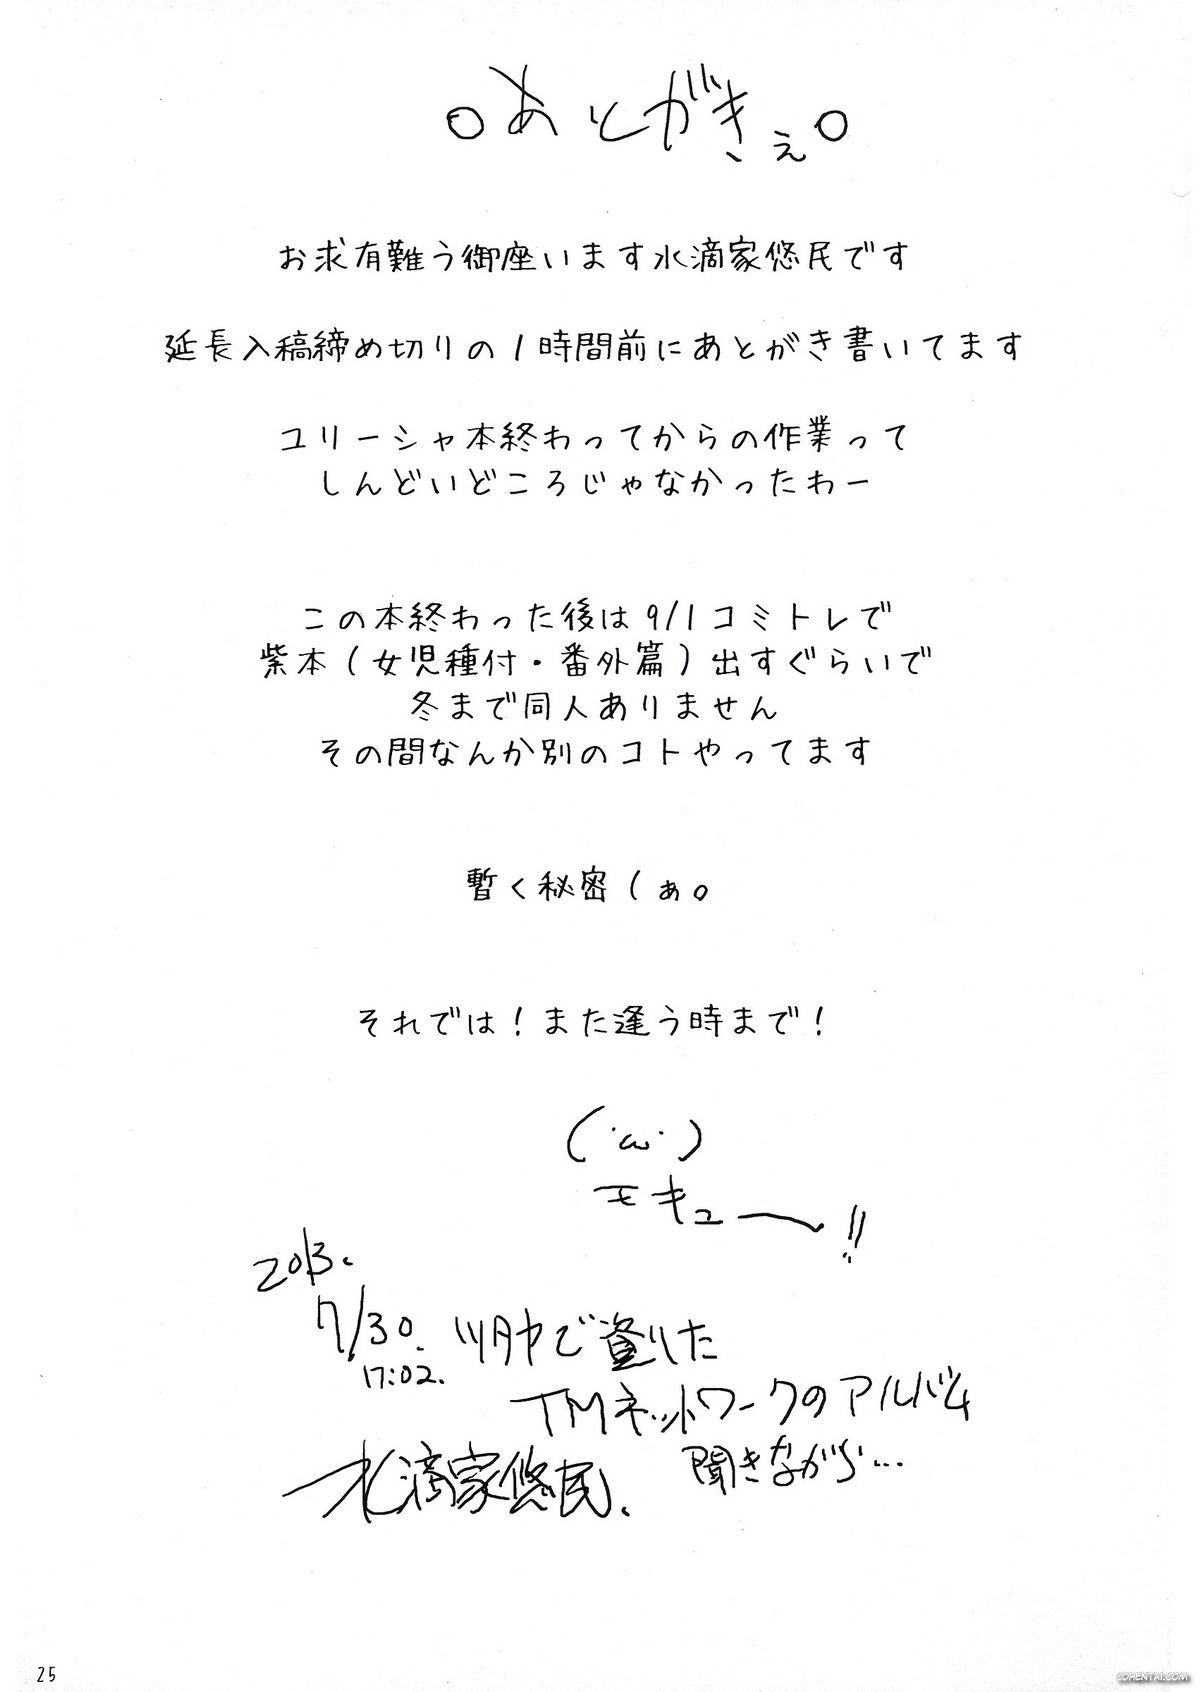 ○あとがきぇ○
お求有難う御座います水滴家悠民です
延長入稿締め切りの1時間前にあとがき書いてます
ユリーシャ本終わってからの作業って
しんどいどころじゃなかったわー
この本終わった後は9/1コミトレで
紫本(女児種付・番外篇)出すぐらいで
冬まで同人ありません
その間なんか別のコトやってます
暫く秘密(ぁ。
それでは!また逢う時まで!
(・ω・)
モキュー!!
2013.
7/30.
17:02.
TMネットワークのアルバム
聞きながら…
水滴家悠民.
25
GOHENTAI.COM